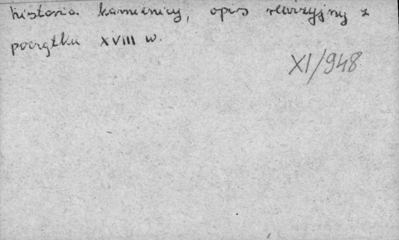 historia kamienicy, opis rewizyjny z
początku XVIII w.
XI/948